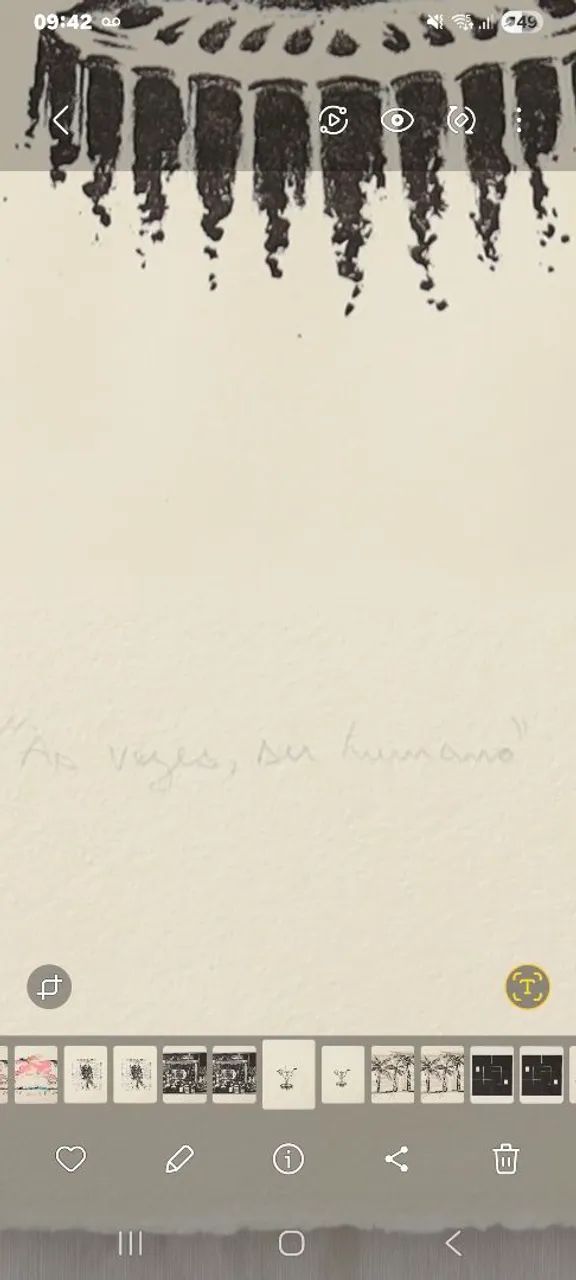 09:42
49
"Às vezes, ser humano"